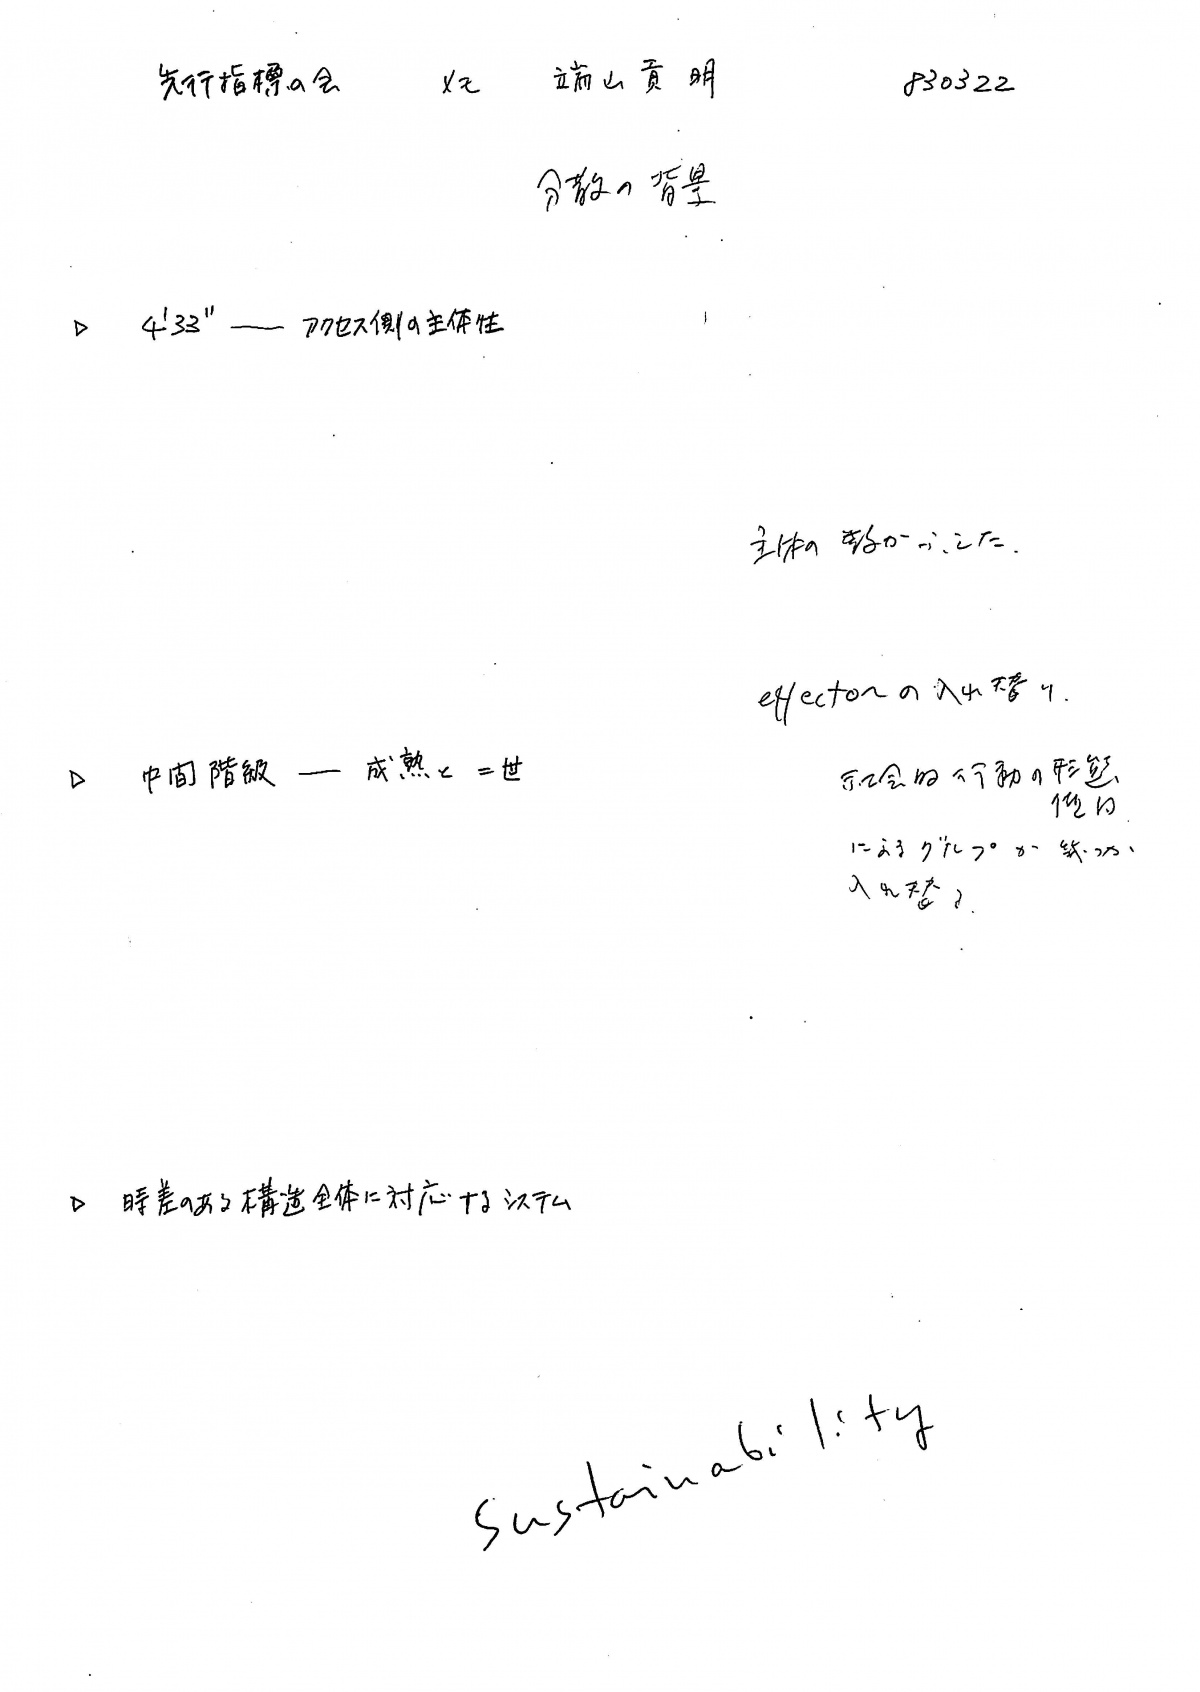 先行指標の会 メモ 端山貢明 830322
分散の背景
▷ 4'33" — アクセス側の主体性
主体の数がふえた.
effectorの入れ替り.
▷ 中間階級 — 成熟と二世
社会的行動の形態、
によるグループが
入れ替る.
▷ 時差のある構造全体に対応するシステム
sustainability